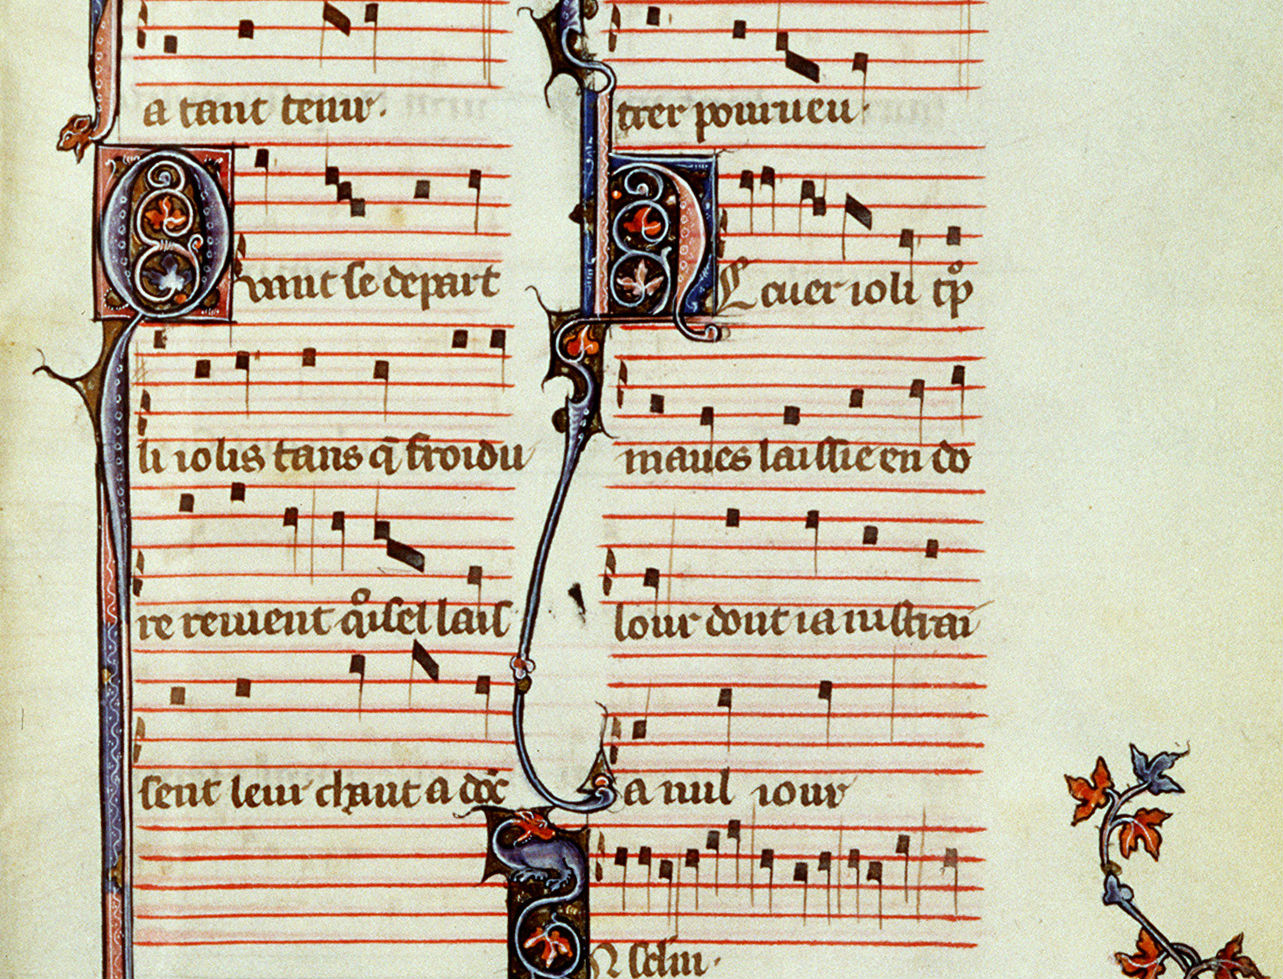 a tant tenir.
Quant se depart
li iolis tans q̃ froidu
re reuient qͥ oisel lais
sent leur chant a doc̃
trer pourueu
Li douer ioli tp̃
maues laissie en do
lour dont ia nistrai
a nul iour
In seculum.